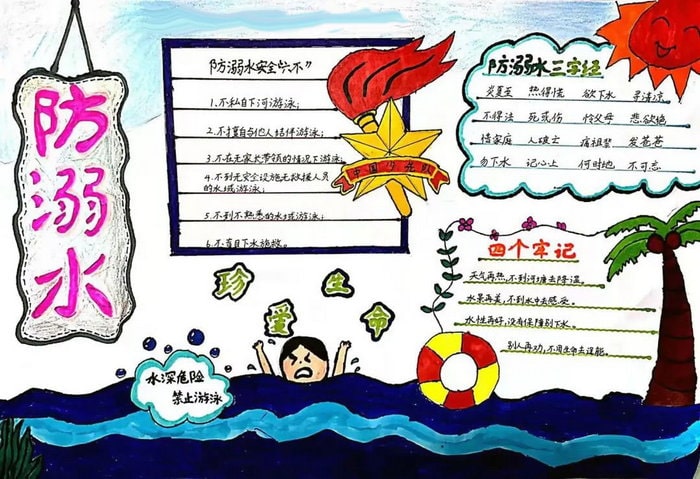 防溺水
防溺水安全"六不"
1.不私自下河游泳;
2.不擅自与他人结伴游泳;
3.不在无家长带领的情况下游泳;
4.不到无安全设施无救援人员
的水域游泳;
5.不到不熟悉的水域游泳;
6.不盲目下水施救。
中国少先队
防溺水三字经
炎夏至 热得慌 欲下水 寻清凉
不得法 死或伤 怜父母 悲欲绝
惜家庭 人破亡 痛祖辈 发苍苍
勿下水 记心上 何时地 不可忘
珍爱生命
四个牢记
天气再热,不到河塘去降温。
水景再美,不到水中去感受。
水性再好,没有保障别下水。
别人再劝,不用生命去逞能。
水深危险
禁止游泳